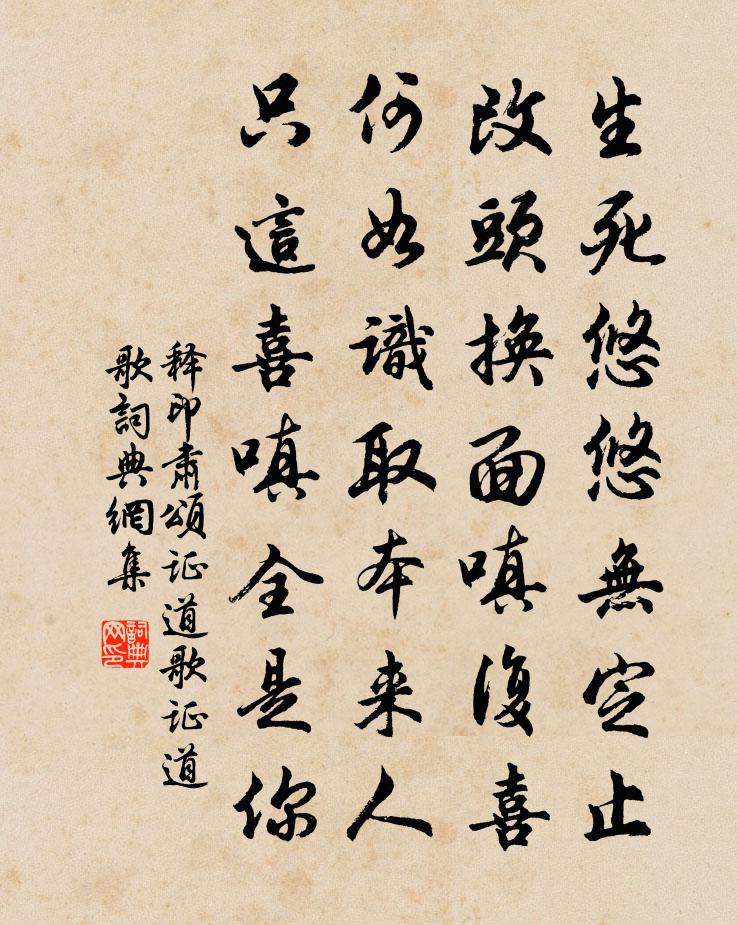 生死悠悠無定止
改頭換面嗔復喜
何如識取本来人
只這喜嗔全是你
释印肃頌证道歌证道
歌詞典網集
詞典网印